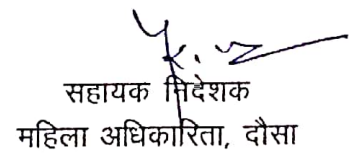 सहायक निदेशक
महिला अधिकारिता, दौसा